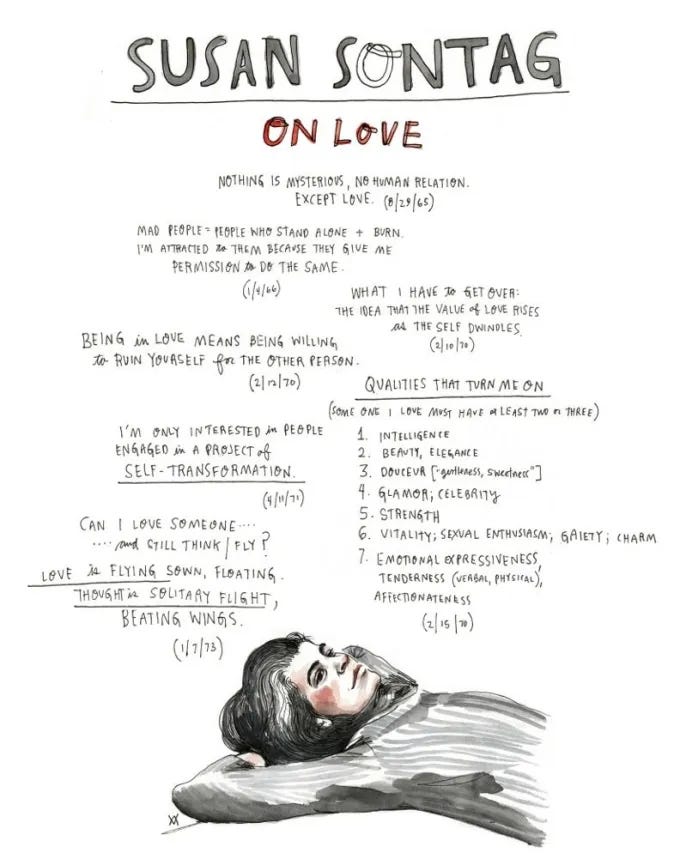 SUSAN SONTAG
ON LOVE
NOTHING IS MYSTERIOUS, NO HUMAN RELATION.
EXCEPT LOVE. (8/29/65)
MAD PEOPLE = PEOPLE WHO STAND ALONE + BURN.
I'M ATTRACTED to THEM BECAUSE THEY GIVE ME
PERMISSION to DO THE SAME.
(1/4/66)
WHAT I HAVE to GET OVER:
THE IDEA THAT THE VALUE of LOVE RISES
as THE SELF DWINDLES.
(2/10/70)
BEING in LOVE MEANS BEING WILLING
to RUIN YOURSELF for THE OTHER PERSON.
(2/12/70)
I'M ONLY INTERESTED in PEOPLE
ENGAGED in A PROJECT of
SELF-TRANSFORMATION.
(4/11/71)
CAN I LOVE SOMEONE....
....and STILL THINK/FLY?
LOVE is FLYING SOWN, FLOATING.
THOUGHT is SOLITARY FLIGHT,
BEATING WINGS.
(1/7/73)
QUALITIES THAT TURN ME ON
(SOME ONE I LOVE MUST HAVE at LEAST TWO or THREE)
1. INTELLIGENCE
2. BEAUTY, ELEGANCE
3. DOUCEUR ["gentleness, sweetness"]
4. GLAMOR; CELEBRITY
5. STRENGTH
6. VITALITY; SEXUAL ENTHUSIASM; GAIETY; CHARM
7. EMOTIONAL EXPRESSIVENESS,
TENDERNESS (VERBAL, PHYSICAL),
AFFECTIONATENESS
(2/15/70)